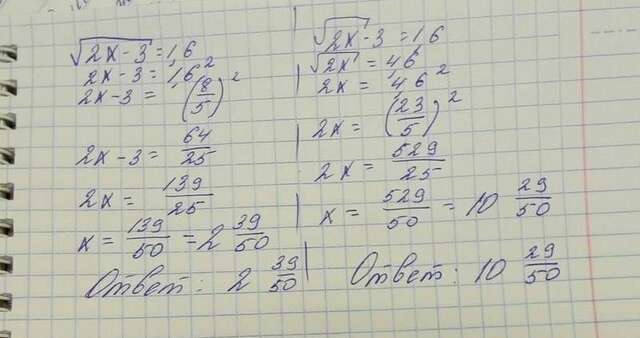 √2x-3 = 1,6
2x-3 = 1,6²
2x-3 = (8/5)²
2x-3 = 64/25
2x = 139/25
x = 139/50 = 2 39/50
Ответ: 2 39/50
√2x -3 = 1,6
√2x = 4,6
2x = 4,6²
2x = (23/5)²
2x = 529/25
x = 529/50 = 10 29/50
Ответ: 10 29/50